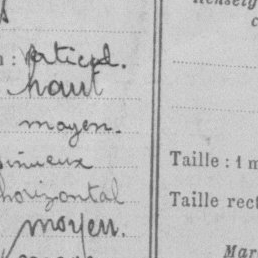 : vertical.
haut
moyen.
sinueux
horizontal
moyen.
Renseig
c
Taille : 1 m
Taille rect
Mar